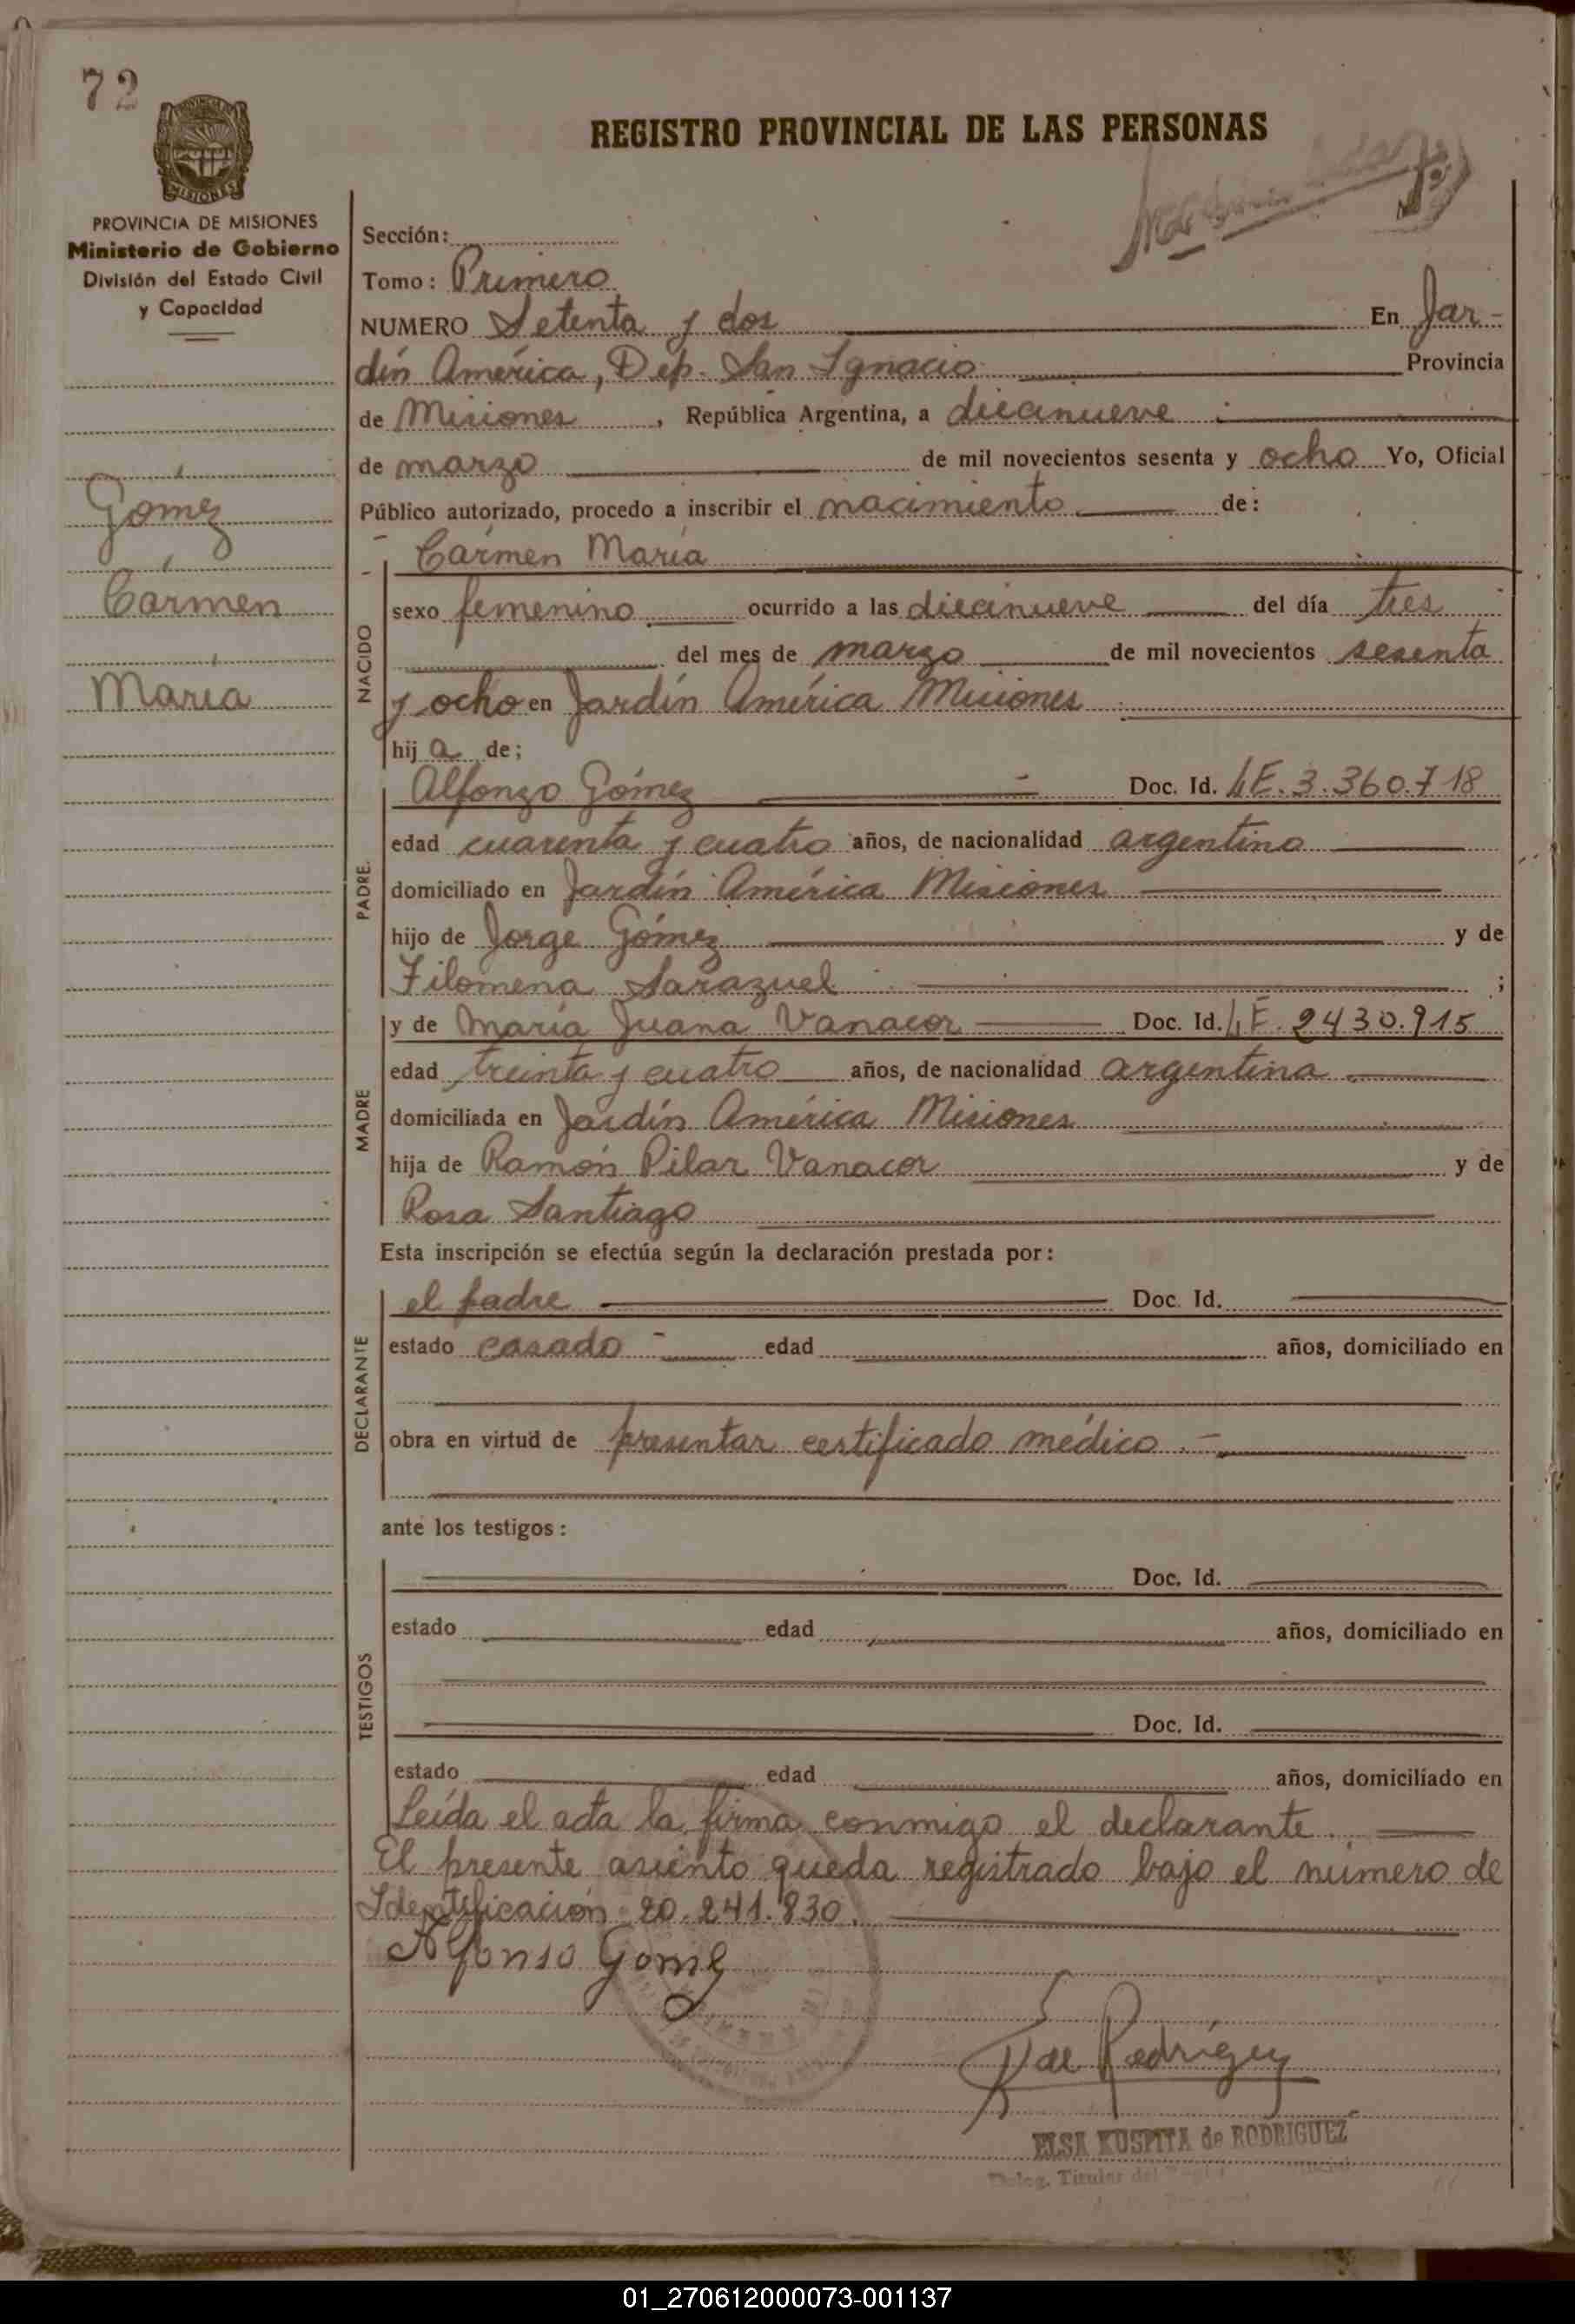 72
REGISTRO PROVINCIAL DE LAS PERSONAS
MISIONES
PROVINCIA DE MISIONES
Ministerio de Gobierno
División del Estado Civil
y Capacidad
Gómez
Carmen
María
Sección:
Tomo: Primero
NUMERO Setenta y dos En Jar-
dín América, Dep. San Ignacio Provincia
de Misiones, República Argentina, a diecinueve
de marzo de mil novecientos sesenta y ocho Yo, Oficial
Público autorizado, procedo a inscribir el nacimiento de:
Carmen María
NACIDO
sexo femenino ocurrido a las diecinueve del día tres
del mes de marzo de mil novecientos sesenta
y ocho en Jardín América Misiones
hija de;
PADRE
Alfonzo Gómez Doc. Id. LE. 3.360.718
edad cuarenta y cuatro años, de nacionalidad argentino
domiciliado en Jardín América Misiones
hijo de Jorge Gómez y de
Filomena Sarazuel ;
MADRE
y de María Juana Vanacor Doc. Id. LE. 2430.915
edad treinta y cuatro años, de nacionalidad argentina
domiciliada en Jardín América Misiones
hija de Ramón Pilar Vanacor y de
Rosa Santiago
Esta inscripción se efectúa según la declaración prestada por:
DECLARANTE
el padre Doc. Id.
estado casado edad años, domiciliado en
obra en virtud de presentar certificado médico.-
ante los testigos:
TESTIGOS
Doc. Id.
estado edad años, domiciliado en
Doc. Id.
estado edad años, domiciliado en
Leída el acta la firma conmigo el declarante.
El presente asiento queda registrado bajo el número de
Identificación 20.241.830.
Alfonso Gomez
de Rodríguez
ELSA KUSPITA de RODRIGUEZ
Deleg. Titular del
01_270612000073-001137